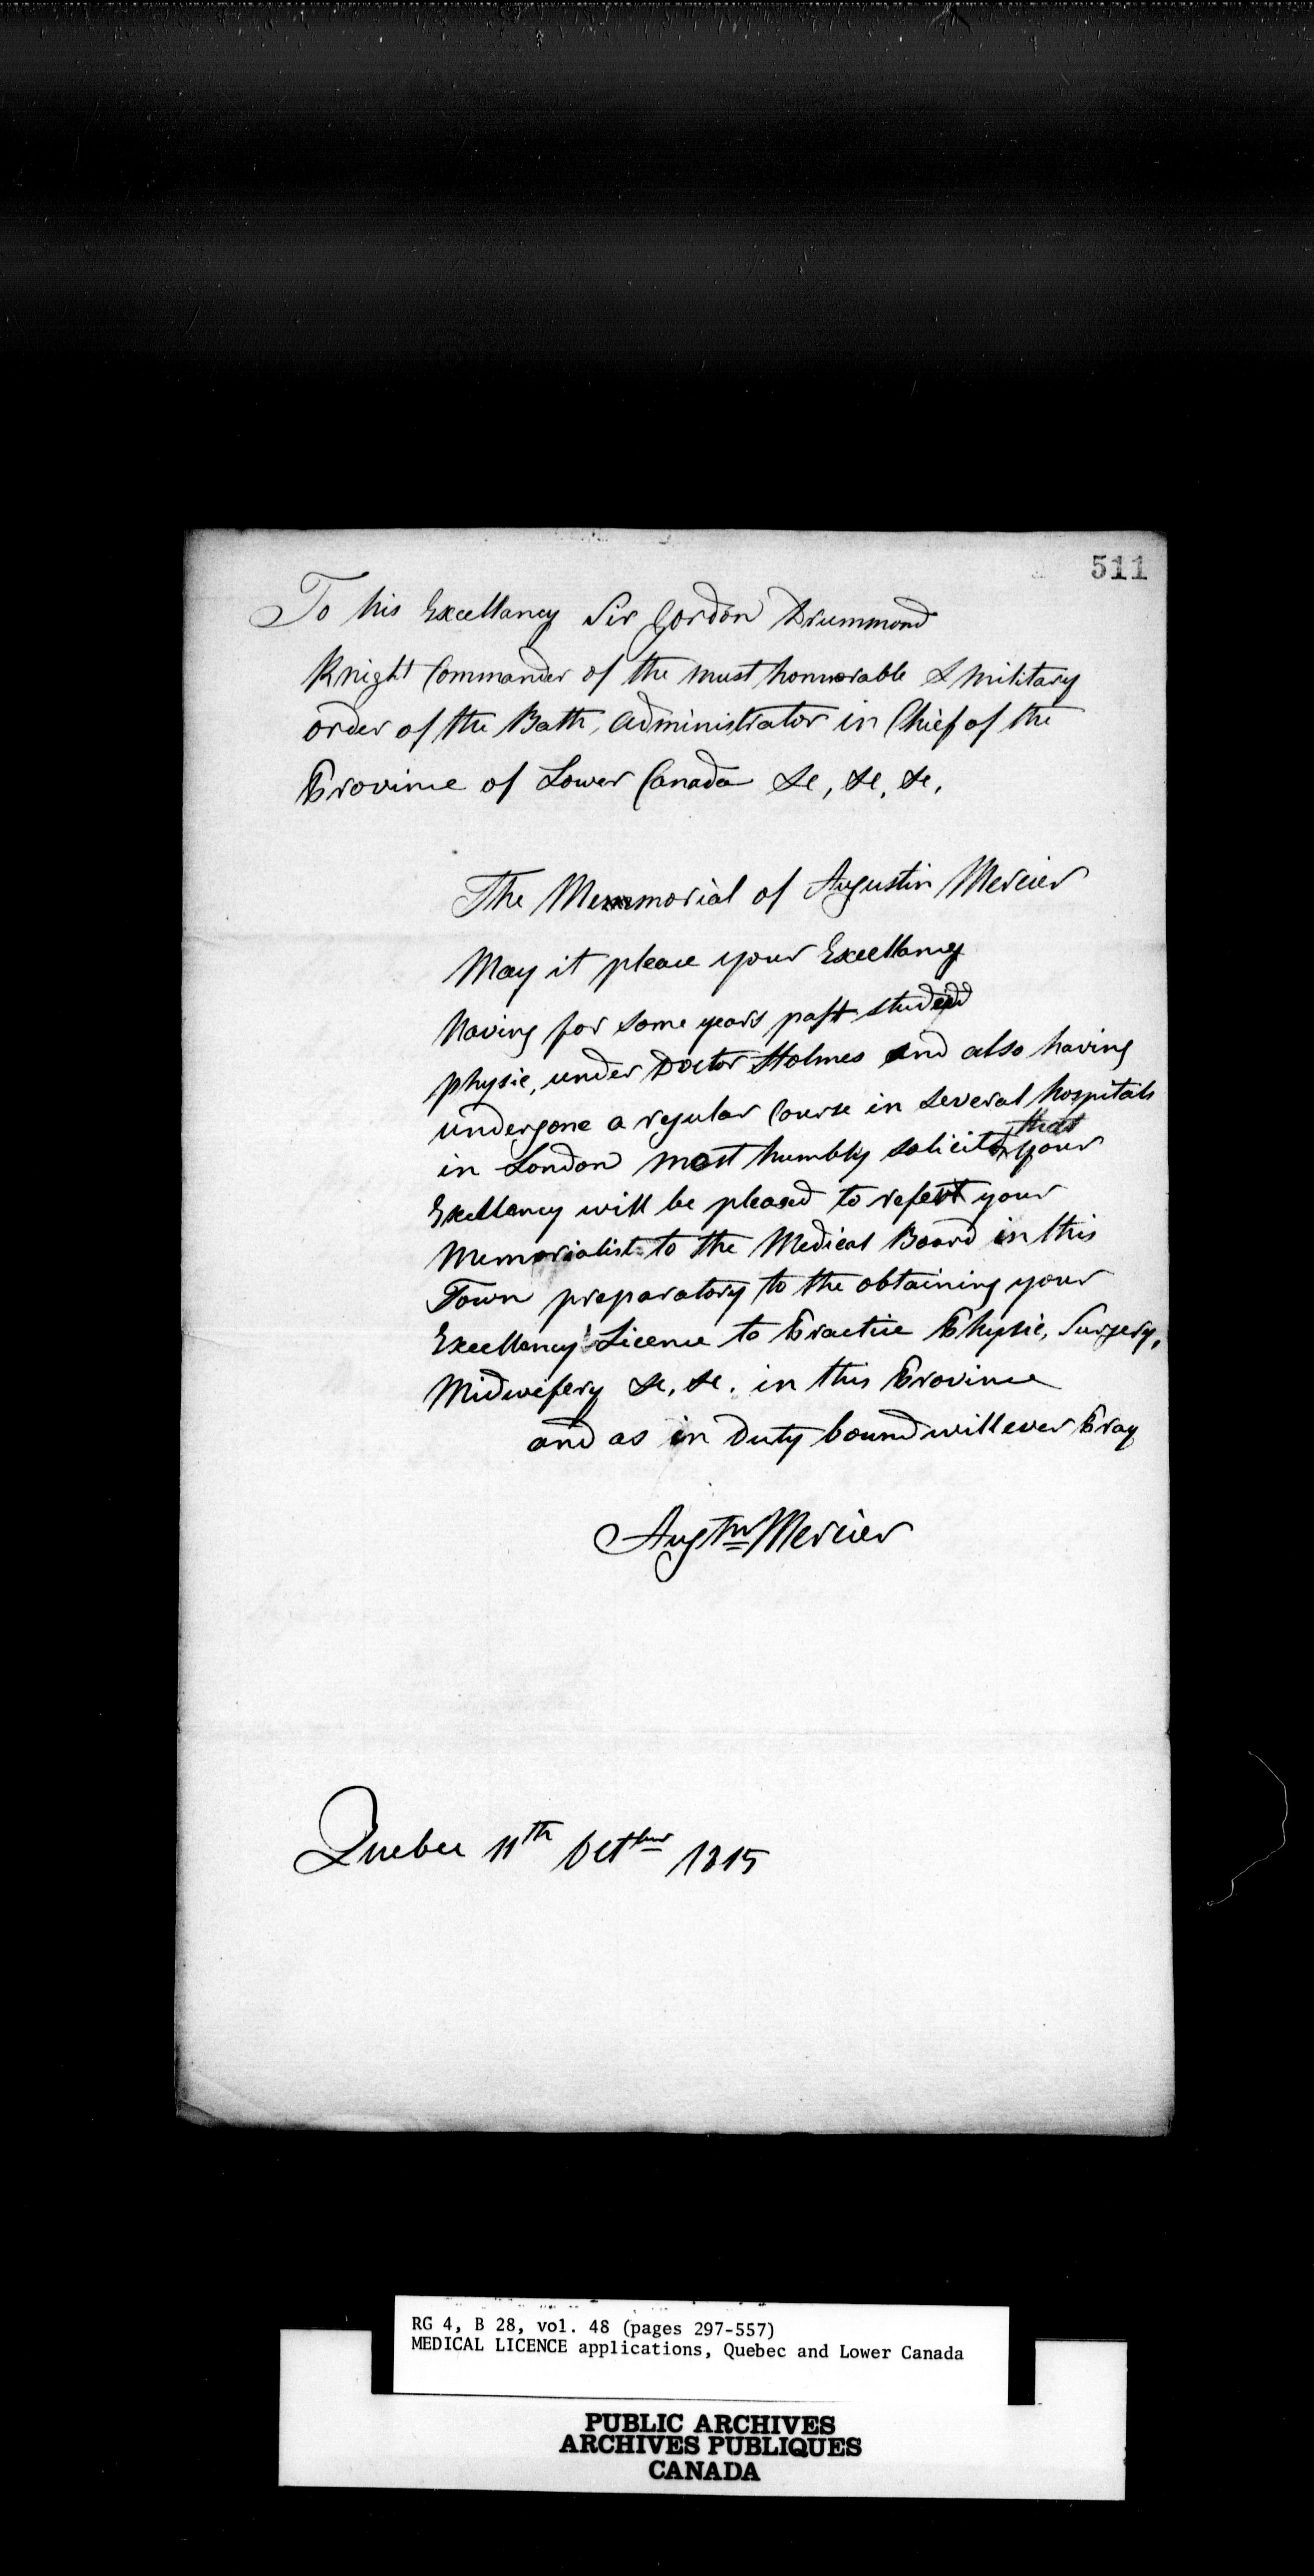 511
To his Excellancy Sir Gordon Drummond
Knight Commander of the must honnorable & Military
order of the Bath, administrator in Chief of the
Province of Lower Canada &c, &c, &c,
The Memmorial of Augustin Mercier
May it please your Excellancy
Having for some years past studedd
physic, under Doctor Holmes and also having
undergone a regular Course in several hospitals
in London most humbly solicits that your
Excellancy will be pleased to refert your
Memorialist to the Medical Board in this
Town preparatory to the obtaining your
Excellancy's Licence to Practice Physic, Surgery,
Midwifery &c, &c. in this Province
and as in Duty bound will ever Pray
Augtn Mercier
Quebec 11th Octber 1815
RG 4, B 28, vol. 48 (pages 297-557)
MEDICAL LICENCE applications, Quebec and Lower Canada
PUBLIC ARCHIVES
ARCHIVES PUBLIQUES
CANADA